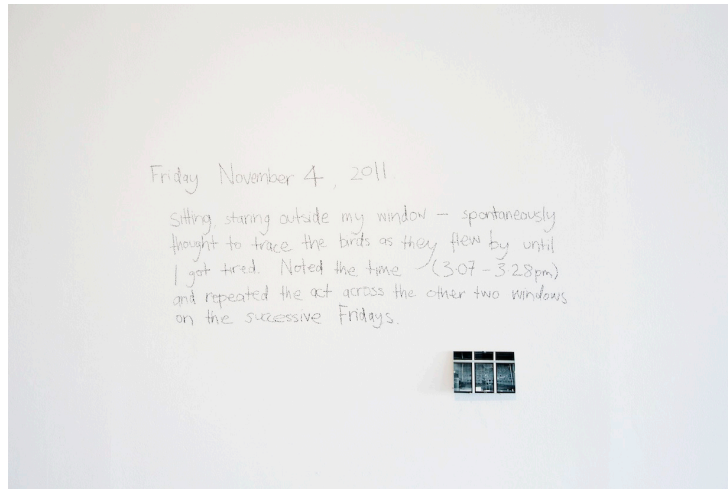 Friday November 4, 2011
Sitting, staring outside my window – spontaneously
thought to trace the birds as they flew by until
I got tired. Noted the time (3.07 – 3.28pm)
and repeated the act across the other two windows
on the successive Fridays.